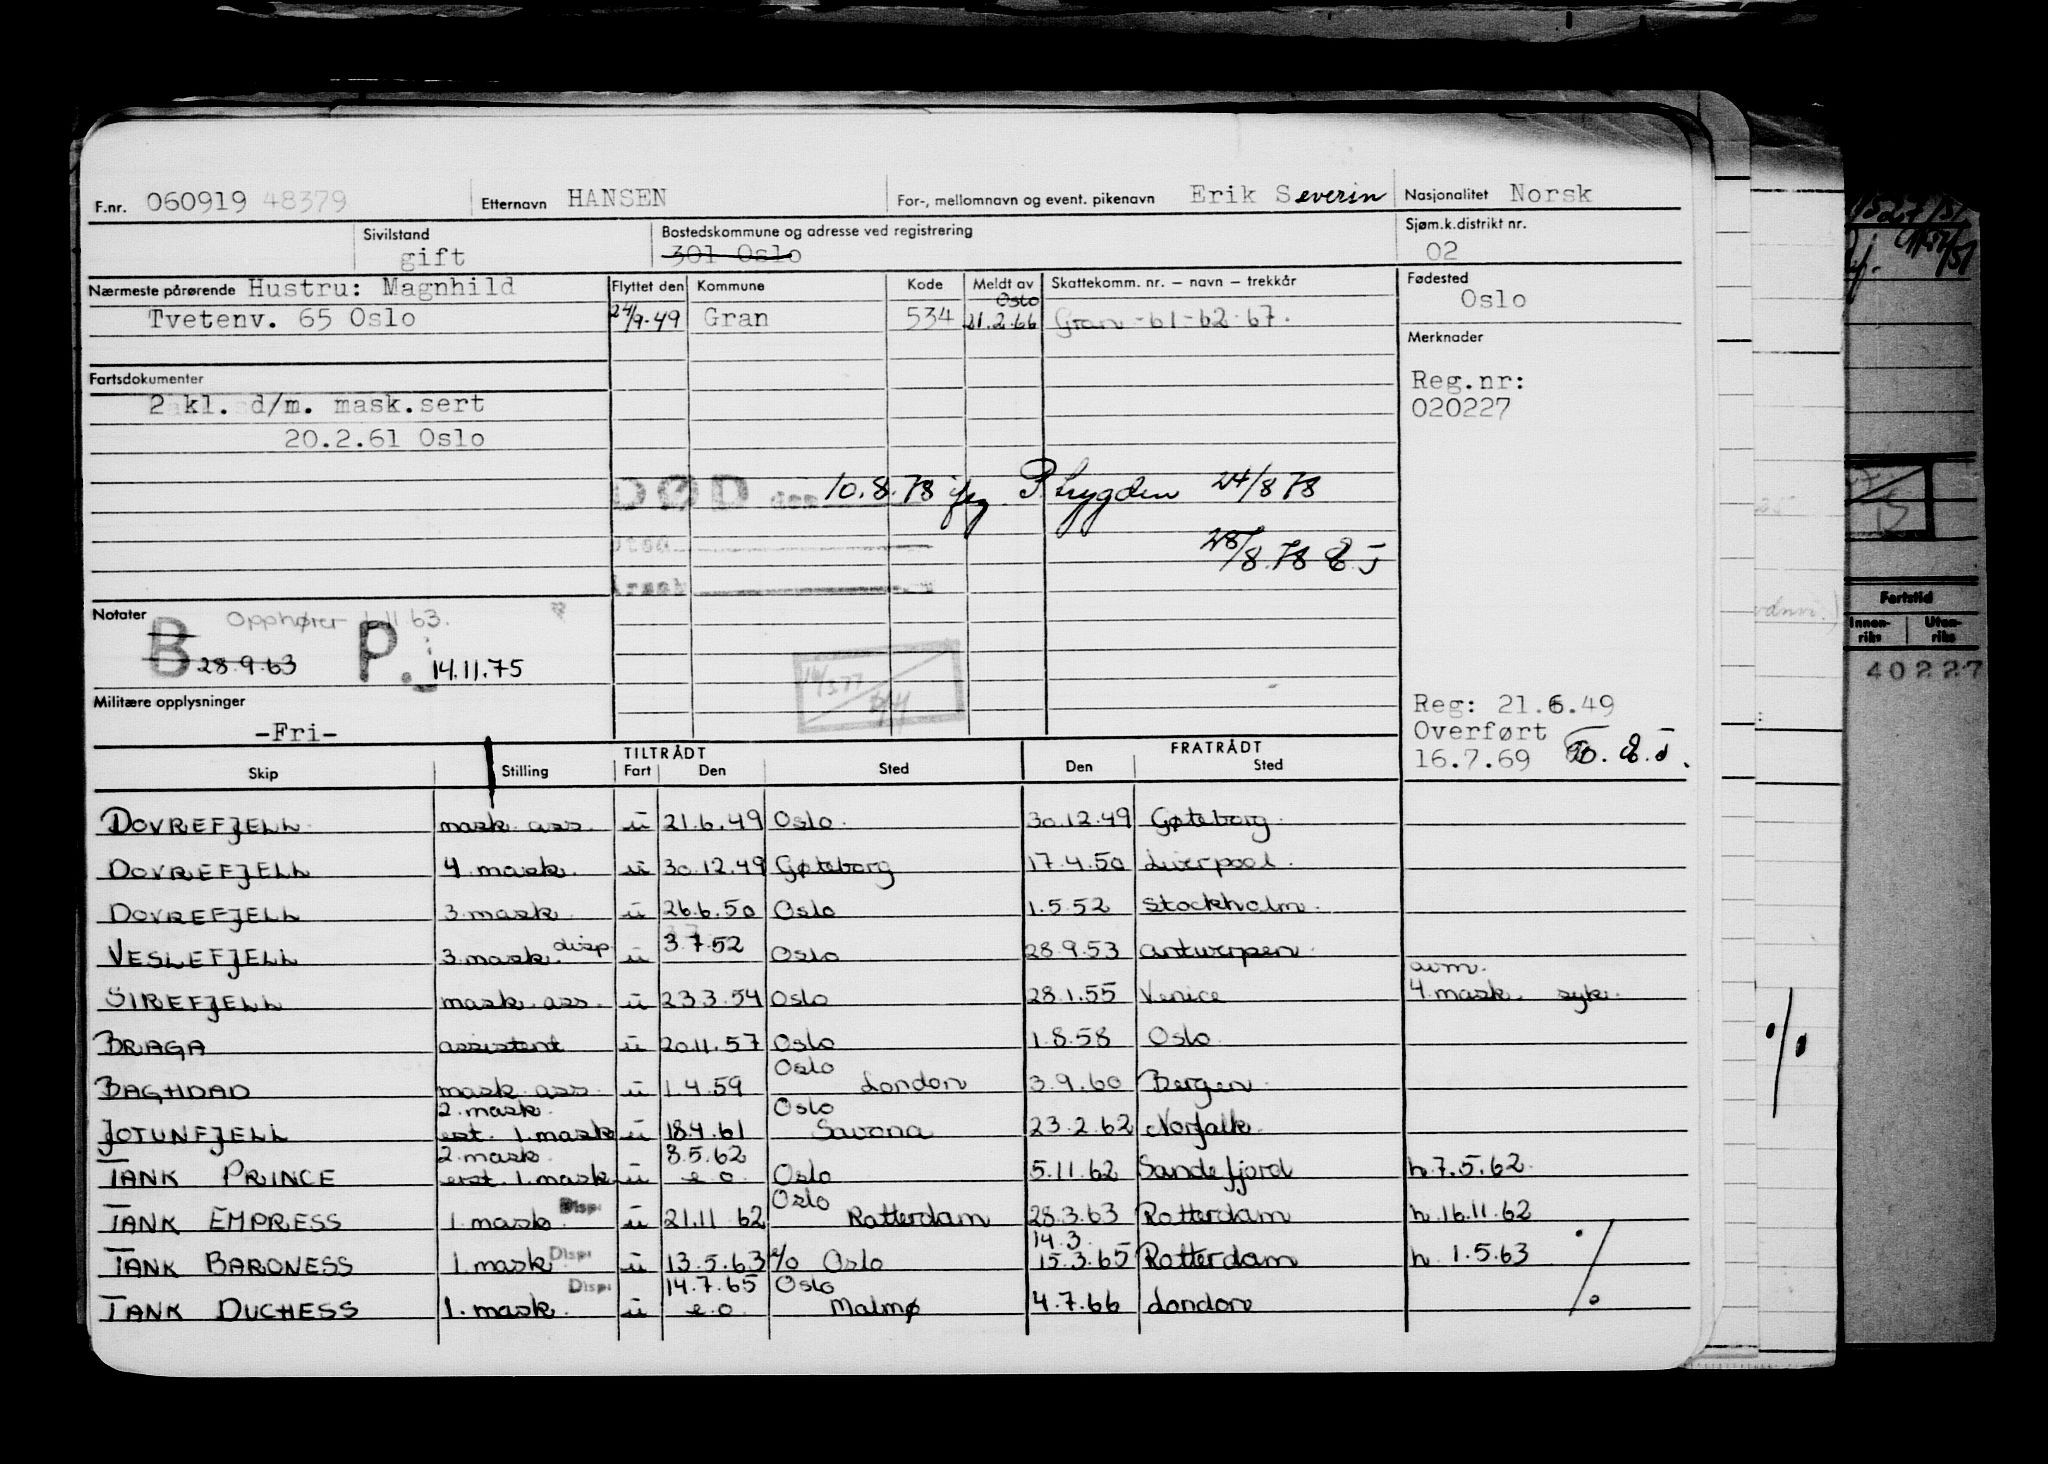 F.nr. 060919 48379 Etternavn HANSEN For-, mellomnavn og event. pikenavn Erik Severin Nasjonalitet Norsk
Sivilstand gift
Bostedskommune og adresse ved registrering
301 Oslo
Sjøm.k.distrikt nr.
02
Nærmeste pårørende Hustru: Magnhild
Tvetenv. 65 Oslo
Flyttet den Kommune Kode Meldt av Skattekomm. nr. – navn – trekkår
Oslo
24/9-49 Gran 534 21.2.66 Gran -61-62-67.
Fødested
Oslo
Merknader
Reg.nr:
020227
Fartsdokumenter
2 kl. d/m. mask.sert
20.2.61 Oslo
DØD den 10.8.78 P. trygden 24/8 78
28/8.78 E J
Notater
Opphører 1.11 63.
B 28.9.63 P. 14.11.75
Militære opplysninger
-Fri-
Reg: 21.6.49
Overført
16.7.69
TILTRÅDT FRATRÅDT
Skip Stilling Fart Den Sted Den Sted
DOVREFJELL mask. ass. u 21.6.49 Oslo. 30.12.49 Gøteborg.
DOVREFJELL 4. mask. u 30.12.49 Gøteborg 17.4.50 Liverpool.
DOVREFJELL 3. mask. u 26.6.50 Oslo 1.5.52 Stockholm.
VESLEFJELL 3. mask. disp u 3.7.52 Oslo 28.9.53 Antwerpen.
avm.
SIREFJELL mask. ass. u 23.3.54 Oslo 28.1.55 Venice 4. mask. syk.
BRAGA assistent u 20.11.57 Oslo 1.8.58 Oslo.
Oslo
BAGHDAD mask. ass. u 1.4.59 London 3.9.60 Bergen.
2. mask. Oslo
JOTUNFJELL est. 1. mask u 18.4.61 Savona 23.2.62 Norfolk.
2. mask. 3.5.62
TANK PRINCE erst. 1. mask. u e.o. Oslo 5.11.62 Sandefjord h.7.5.62.
Disp: Oslo
TANK EMPRESS 1. mask u 21.11 62 Rotterdam 28.3.63 Rotterdam h.16.11.62
14.3.
TANK BARONESS 1. mask. Disp: u 13.5.63 e/o Oslo 15.3.65 Rotterdam h. 1.5.63
Disp: 14.7.65 Oslo
TANK DUCHESS 1. mask. u e.o. Malmø 4.7.66 London
Fartstid
Innen-riks Uten-riks
40227